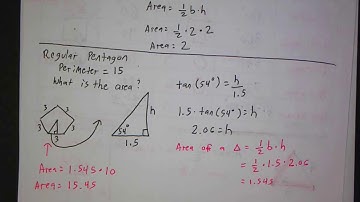 Area = 1/2 b · h
Area = 1/2 · 2 · 2
Area = 2
Regular Pentagon
Perimeter = 15
What is the area?
3 3
3 3
3
54°
h
1.5
tan(54°) = h/1.5
1.5 · tan(54°) = h
2.06 = h
Area of a Δ = 1/2 b · h
= 1/2 · 1.5 · 2.06
= 1.545
Area = 1.545 · 10
Area = 15.45